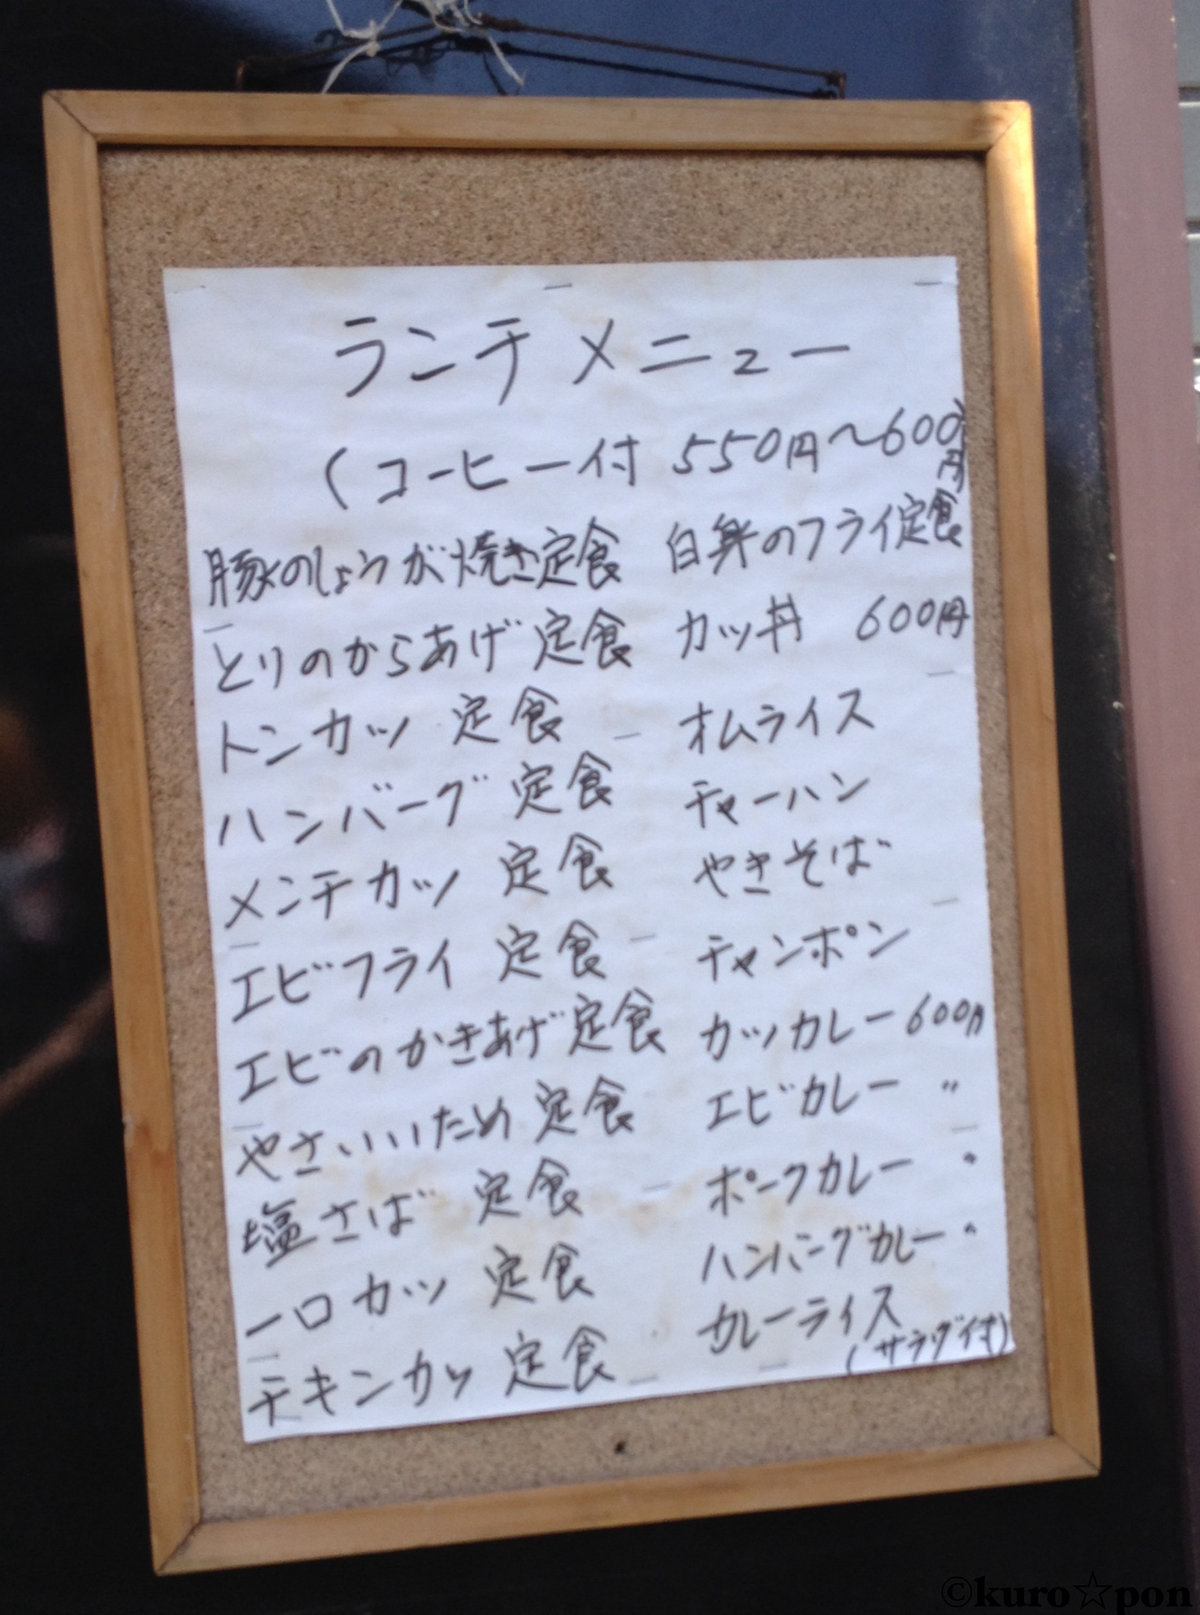 ランチメニュー
(コーヒー付 550円〜600円)
豚のしょうが焼き定食
とりのからあげ定食
トンカツ 定食
ハンバーグ 定食
メンチカツ 定食
エビフライ 定食
エビのかきあげ定食
やさいいため 定食
塩さば 定食
一口カツ 定食
チキンカツ 定食
白身のフライ定食
カツ丼 600円
オムライス
チャーハン
やきそば
チャンポン
カツカレー 600円
エビカレー 〃
ポークカレー 〃
ハンバーグカレー 〃
カレーライス
(サラダ付)
©kuro☆pon